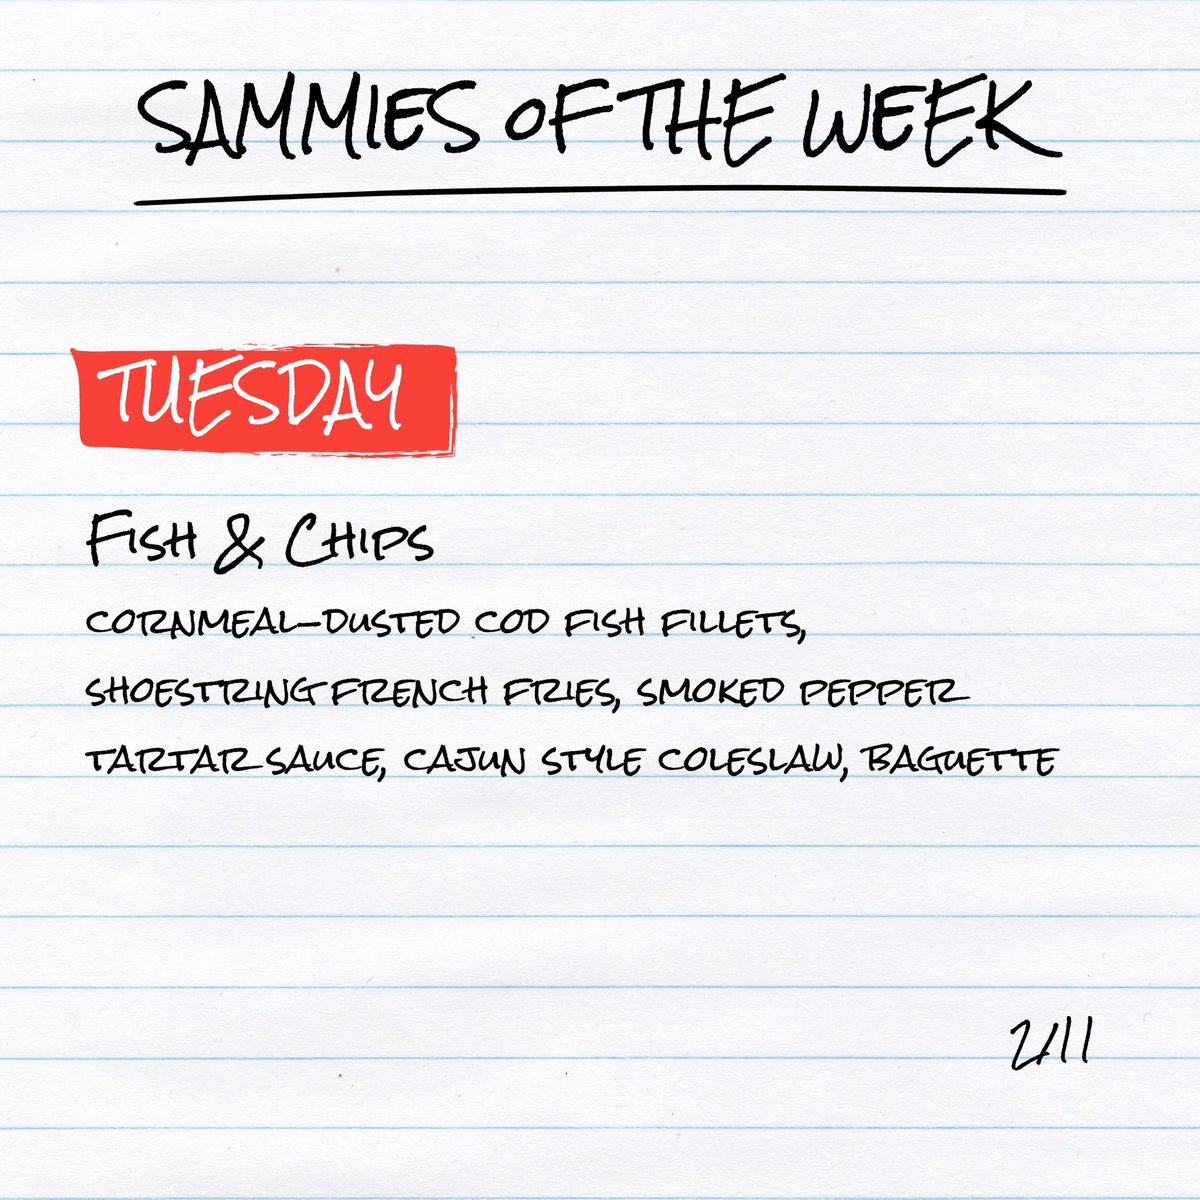 SAMMIES OF THE WEEK
TUESDAY
FISH & CHIPS
CORNMEAL-DUSTED COD FISH FILLETS,
SHOESTRING FRENCH FRIES, SMOKED PEPPER
TARTAR SAUCE, CAJUN STYLE COLESLAW, BAGUETTE
2/11